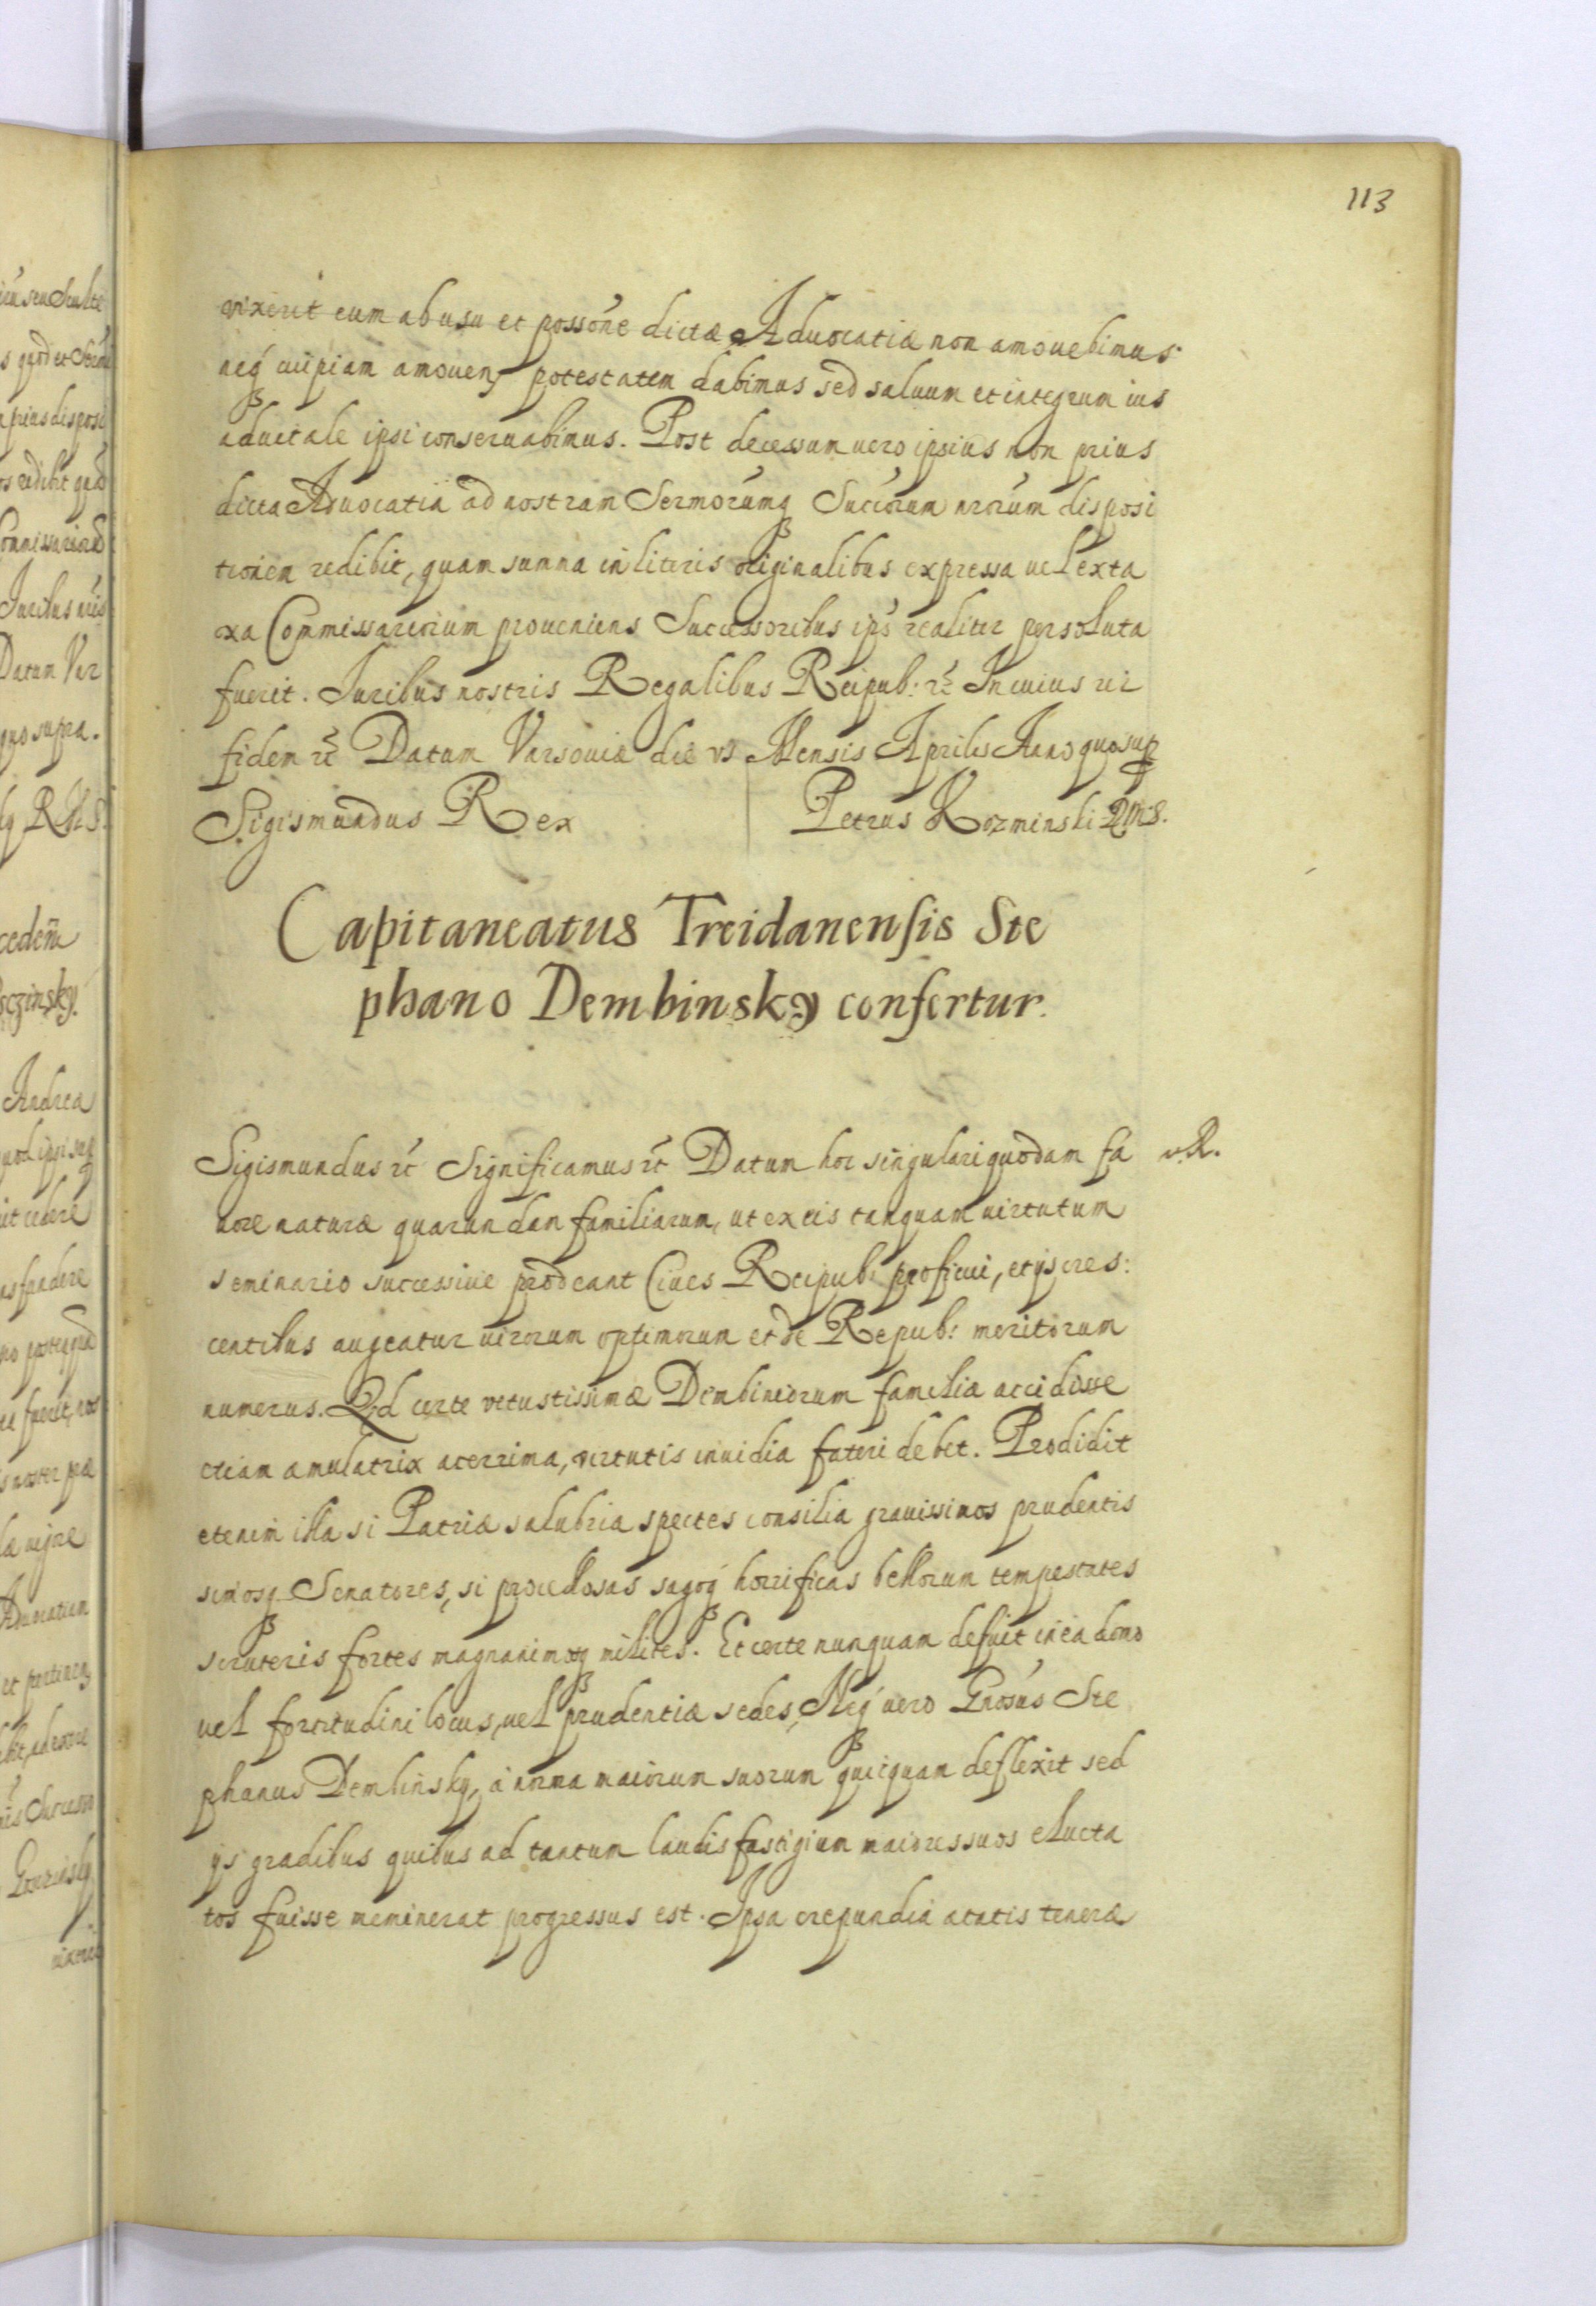 113
vixerit eum ab usu et possōne dictæ Aduocatiæ non amouebimus
neq́ cuipiam amouen potestatem dabimus sed saluum et integrum ius
aduitale ipsi conseruabimus. Post decessum uero ipsius non prius
dicta Aduocatia ad nostram Sermorumq Succorum nrorum disposi
tionem redibit, quam summa in literis originalibus expressa uel ex ta
xa Commissariorum proueniens Successoribus ips realiter persoluta
fuerit. Iuribus nostris Regalibus Reipub: rc̄ In cuius rei
fidem rc̄ Datum Varsouiæ die vs Mensis Aprilis Anno quo sup
Sigismundus Rex Petrus Kozminski RMS.
Capitaneatus Treidanensis Ste
phano Dembinsky confertur.
Sigismundus rc̄ Significamus rc̄ Datum hoc singulari quodam fa
v.R.
uore naturæ quarundam familiarum, ut ex eis tanquam uirtutum
seminario successiue prodeant Ciues Reipub: proficui, et ijs cres:
centibus augeatur uirorum optimorum et de Repub: meritorum
numerus. Qd certe vetustissimæ Dembiniorum familiæ accidisse
etiam æmulatrix acerrima, virtutis inuidia fateri debet. Prodidit
etenim illa si Patriæ salubria spectes consilia grauissimos prudentis
simosq Senatores, si procellosas sagoq́ horrificas bellorum tempestates
scruteris fortes magnanimosq milites. Et certe nunquam defuit in ea domo
uel fortitudini locus, uel prudentiæ sedes, Neq́ uero Gnosus Ste
phanus Dembinsky, à norma maiorum suorum quicquam deflexit sed
ijs gradibus quibus ad tantum laudis fastigium maiores suos elucta
tos fuisse meminerat progressus est. Ipsa crepundia ætatis teneræ